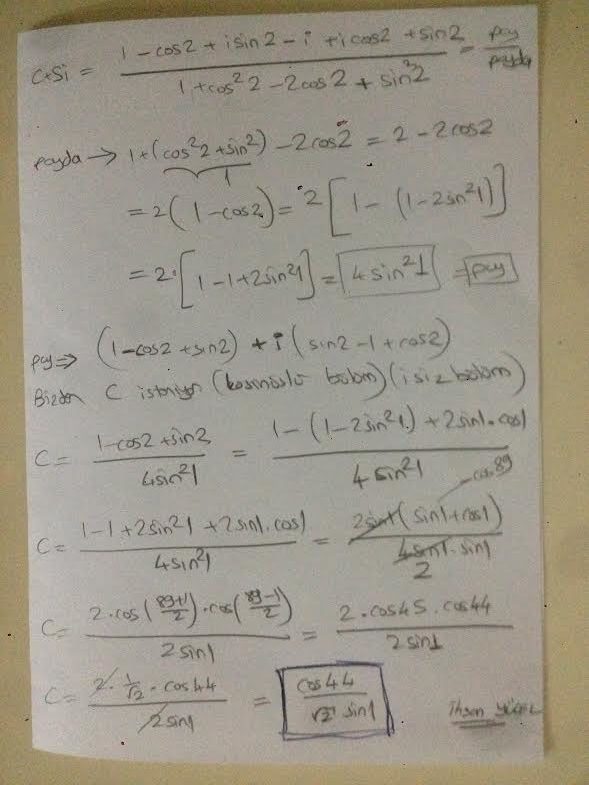 C+Si = (1 - cos2 + isin2 - i + icos2 + sin2) / (1 + cos²2 - 2cos2 + sin²2) = pay / payda
payda → 1 + (cos²2 + sin²2) - 2cos2 = 2 - 2cos2
1
= 2(1 - cos2) = 2[1 - (1 - 2sin²1)]
= 2·[1 - 1 + 2sin²1] = 4sin²1 = pay
pay ⇒ (1 - cos2 + sin2) + i(sin2 - 1 + cos2)
Bizden C isteniyor (kosinüslü bölüm) (i siz bölüm)
C = (1 - cos2 + sin2) / (4sin²1) = (1 - (1 - 2sin²1) + 2sin1·cos1) / (4sin²1)
C = (1 - 1 + 2sin²1 + 2sin1·cos1) / (4sin²1) = (2sin1(sin1 + cos1)) / (4sin1·sin1)
cos89
2
C = (2·cos((89+1)/2)·cos((89-1)/2)) / (2sin1) = (2·cos45·cos44) / (2sin1)
C = (2·(1/√2)·cos44) / (2sin1) = cos44 / (√2 sin1)
ihsan